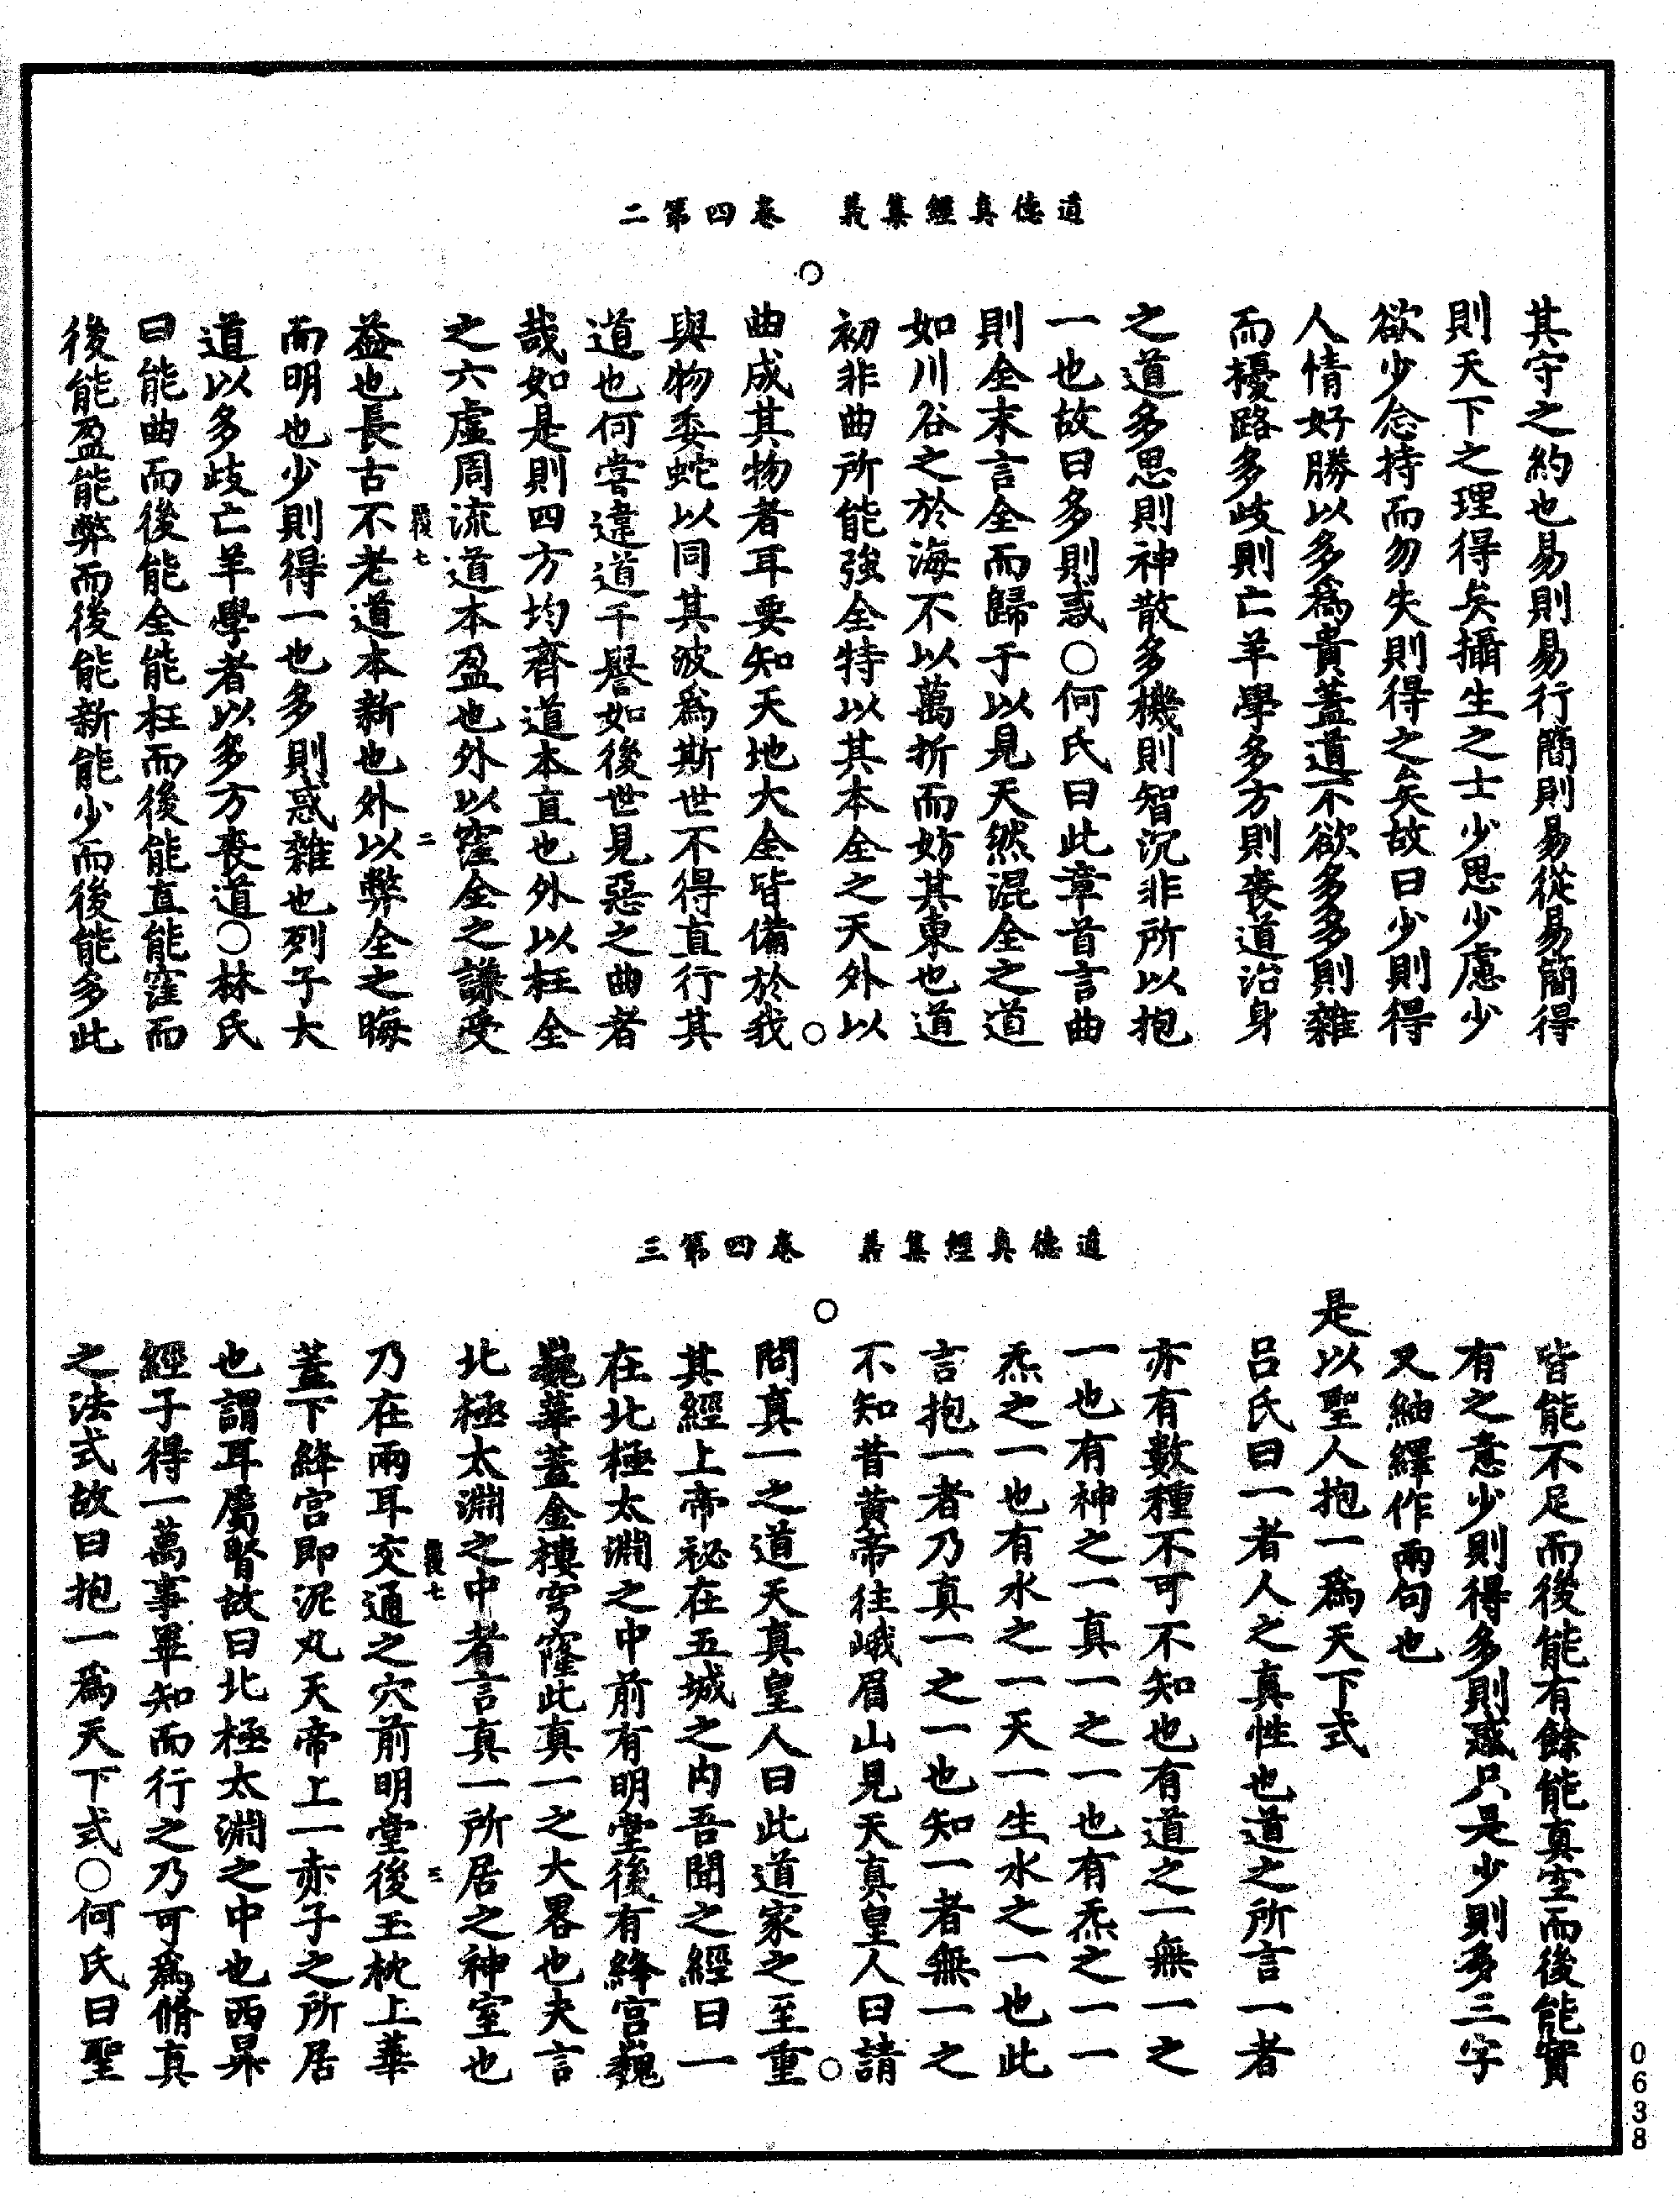 道德真經集義　卷四第二
其守之約也易則易行簡則易從易簡得
則天下之理得矣攝生之士少思少慮少
欲少念持而勿失則得之矣故曰少則得
人情好勝以多為貴蓋道不欲多多則雜
而擾路多歧則亡羊學多方則喪道治身
之道多思則神散多機則智沉非所以抱
一也故曰多則惑○何氏曰此章首言曲
則全末言全而歸于以見天然混全之道
如川谷之於海不以萬折而妨其東也道
初非曲所能強全特以其本全之天外以
曲成其物者耳要知天地大全皆備於我
與物委蛇以同其波為斯世不得直行其
道也何嘗違道干譽如後世見惡之曲者
哉如是則四方均齊道本直也外以枉全
之六虛周流道本盈也外以窪全之謙受
益也長古不老道本新也外以弊全之晦
而明也少則得一也多則惑雜也列子大
道以多歧亡羊學者以多方喪道○林氏
曰能曲而後能全能枉而後能直能窪而
後能盈能弊而後能新能少而後能多此
道德真經集義　卷四第三
皆能不足而後能有餘能真空而後能實
有之意少則得多則惑只是少則多三字
又紬繹作兩句也
是以聖人抱一為天下式
呂氏曰一者人之真性也道之所言一者
亦有數種不可不知也有道之一無一之
一也有神之一真一之一也有炁之一一
炁之一也有水之一天一生水之一也此
言抱一者乃真一之一也知一者無一之
不知昔黃帝往峨眉山見天真皇人曰請
問真一之道天真皇人曰此道家之至重
其經上帝祕在五城之內吾聞之經曰一
在北極太淵之中前有明堂後有絳宮巍
巍華蓋金樓穹窿此真一之大畧也夫言
北極太淵之中者言真一所居之神室也
乃在兩耳交通之穴前明堂後玉枕上華
蓋下絳宮即泥丸天帝上一赤子之所居
也謂耳屬腎故曰北極太淵之中也西昇
經子得一萬事畢知而行之乃可為脩真
之法式故曰抱一為天下式○何氏曰聖
0638